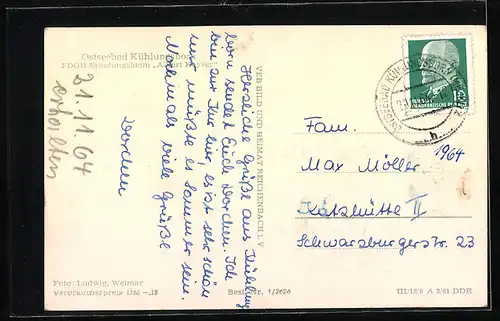 Ostseebad Kühlungsborn
FDGB-Erholungsheim „Albert Kayser"
21.11.64
erhalten
Herzliche Grüße aus Kühlungs
born sendet Euch Dorchen. Ich
bin zur Kur hier, es ist sehr schön
nur müßte es Sommer sein.
Nochmals viele Grüße
Dorchen
VEB BILD UND HEIMAT REICHENBACH i. V
OSTSEEBAD KÜHLUNGSBORN
h
DEUTSCHE
DEMOKRATISCHE REPUBLIK
10
1964
Fam.
Max Möller
Katzhütte II
Schwarzburgerstr. 23
Foto: Ludwig, Weimar
Verbraucherpreis DM -,18
Bestell-Nr. 1/2626
III/18/6 A 3/61 DDR